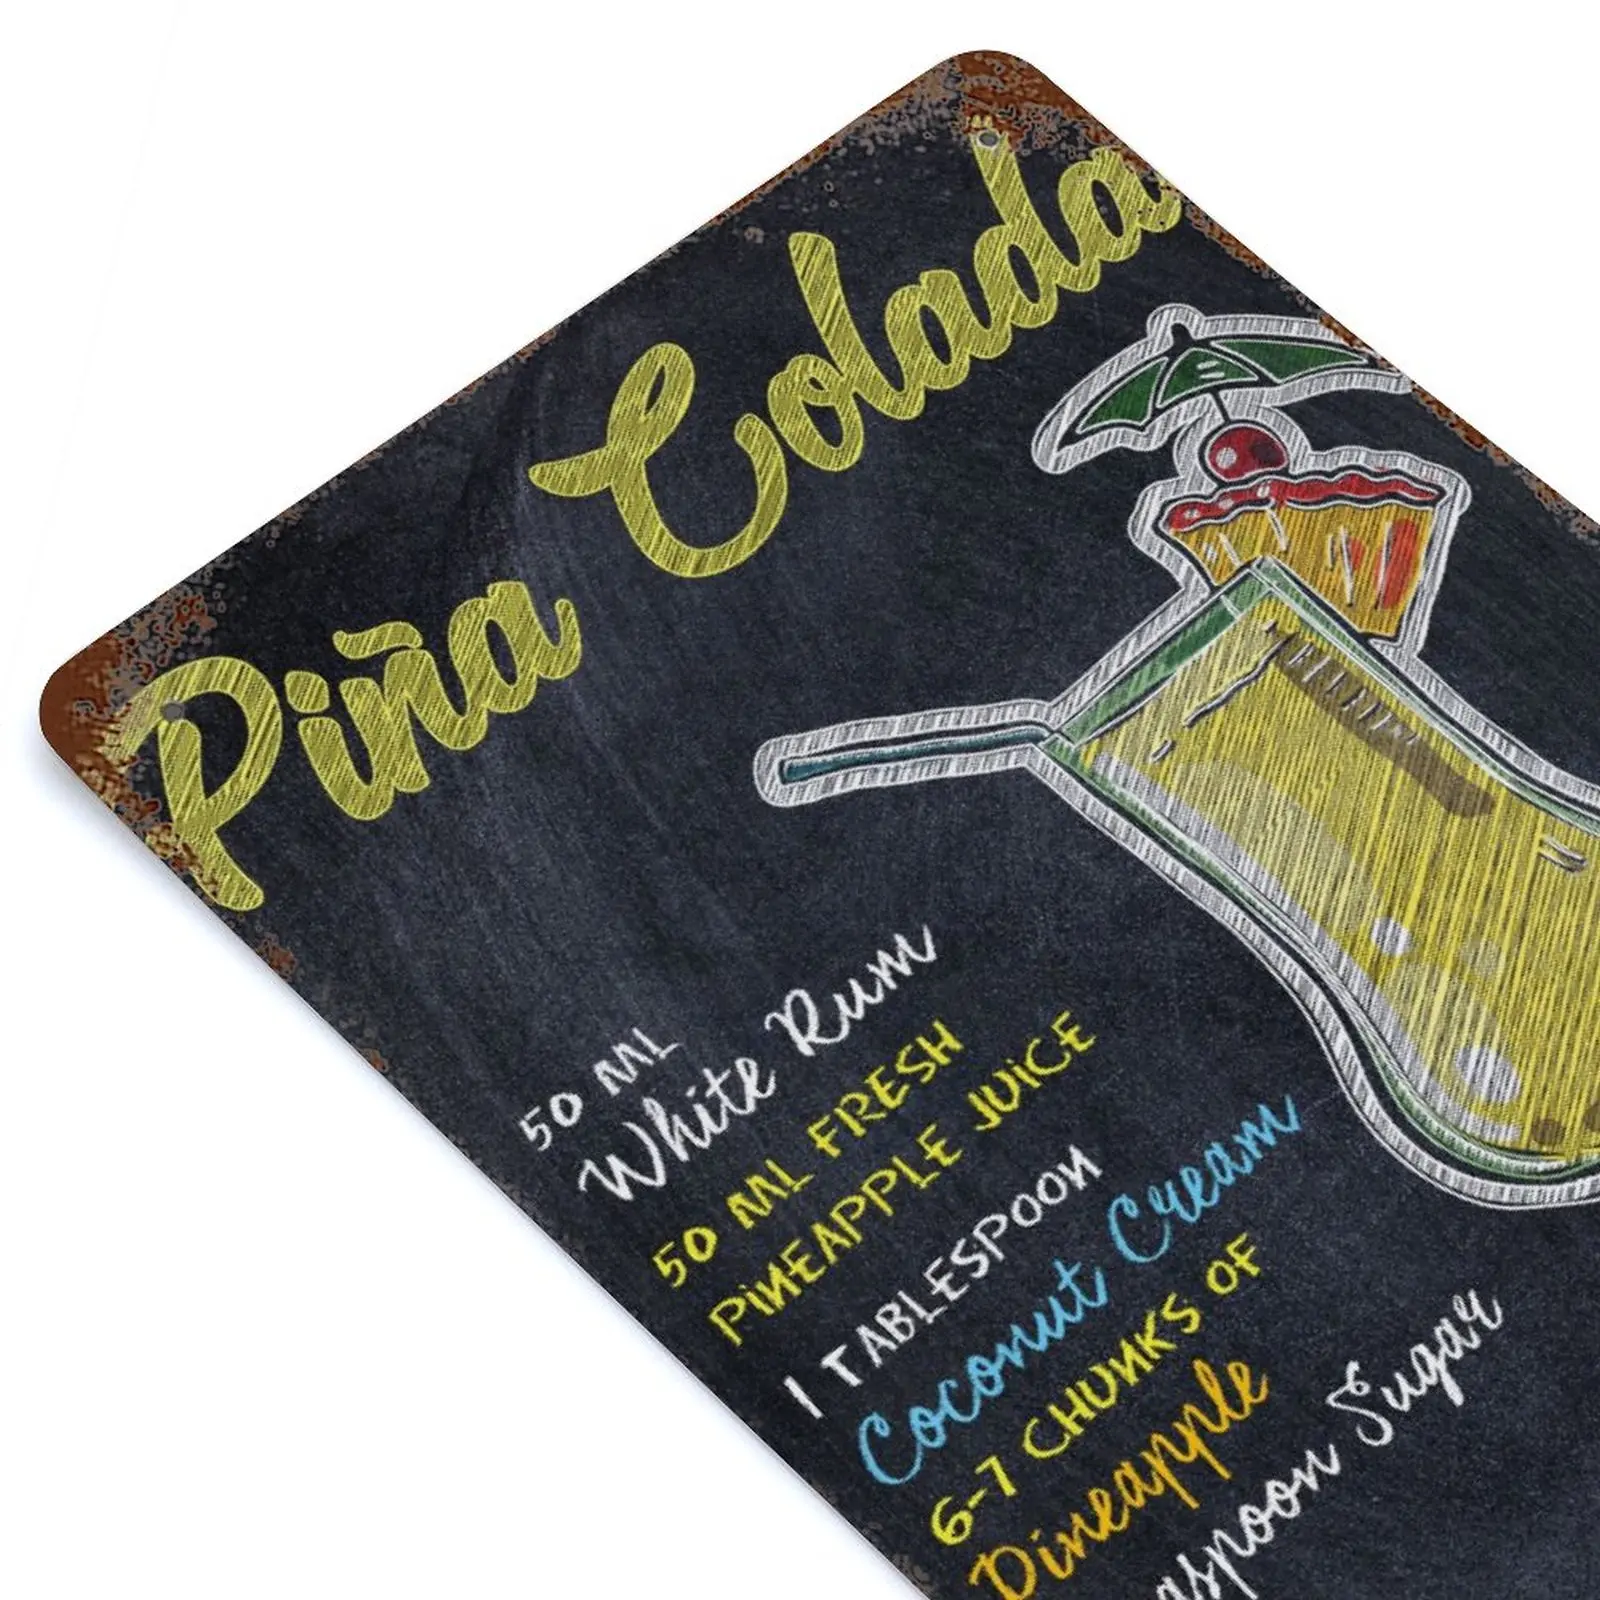 Piña Colada
50 ML
White Rum
50 ML FRESH
PINEAPPLE JUICE
1 TABLESPOON
Coconut Cream
6-7 CHUNKS OF
Pineapple
Sugar